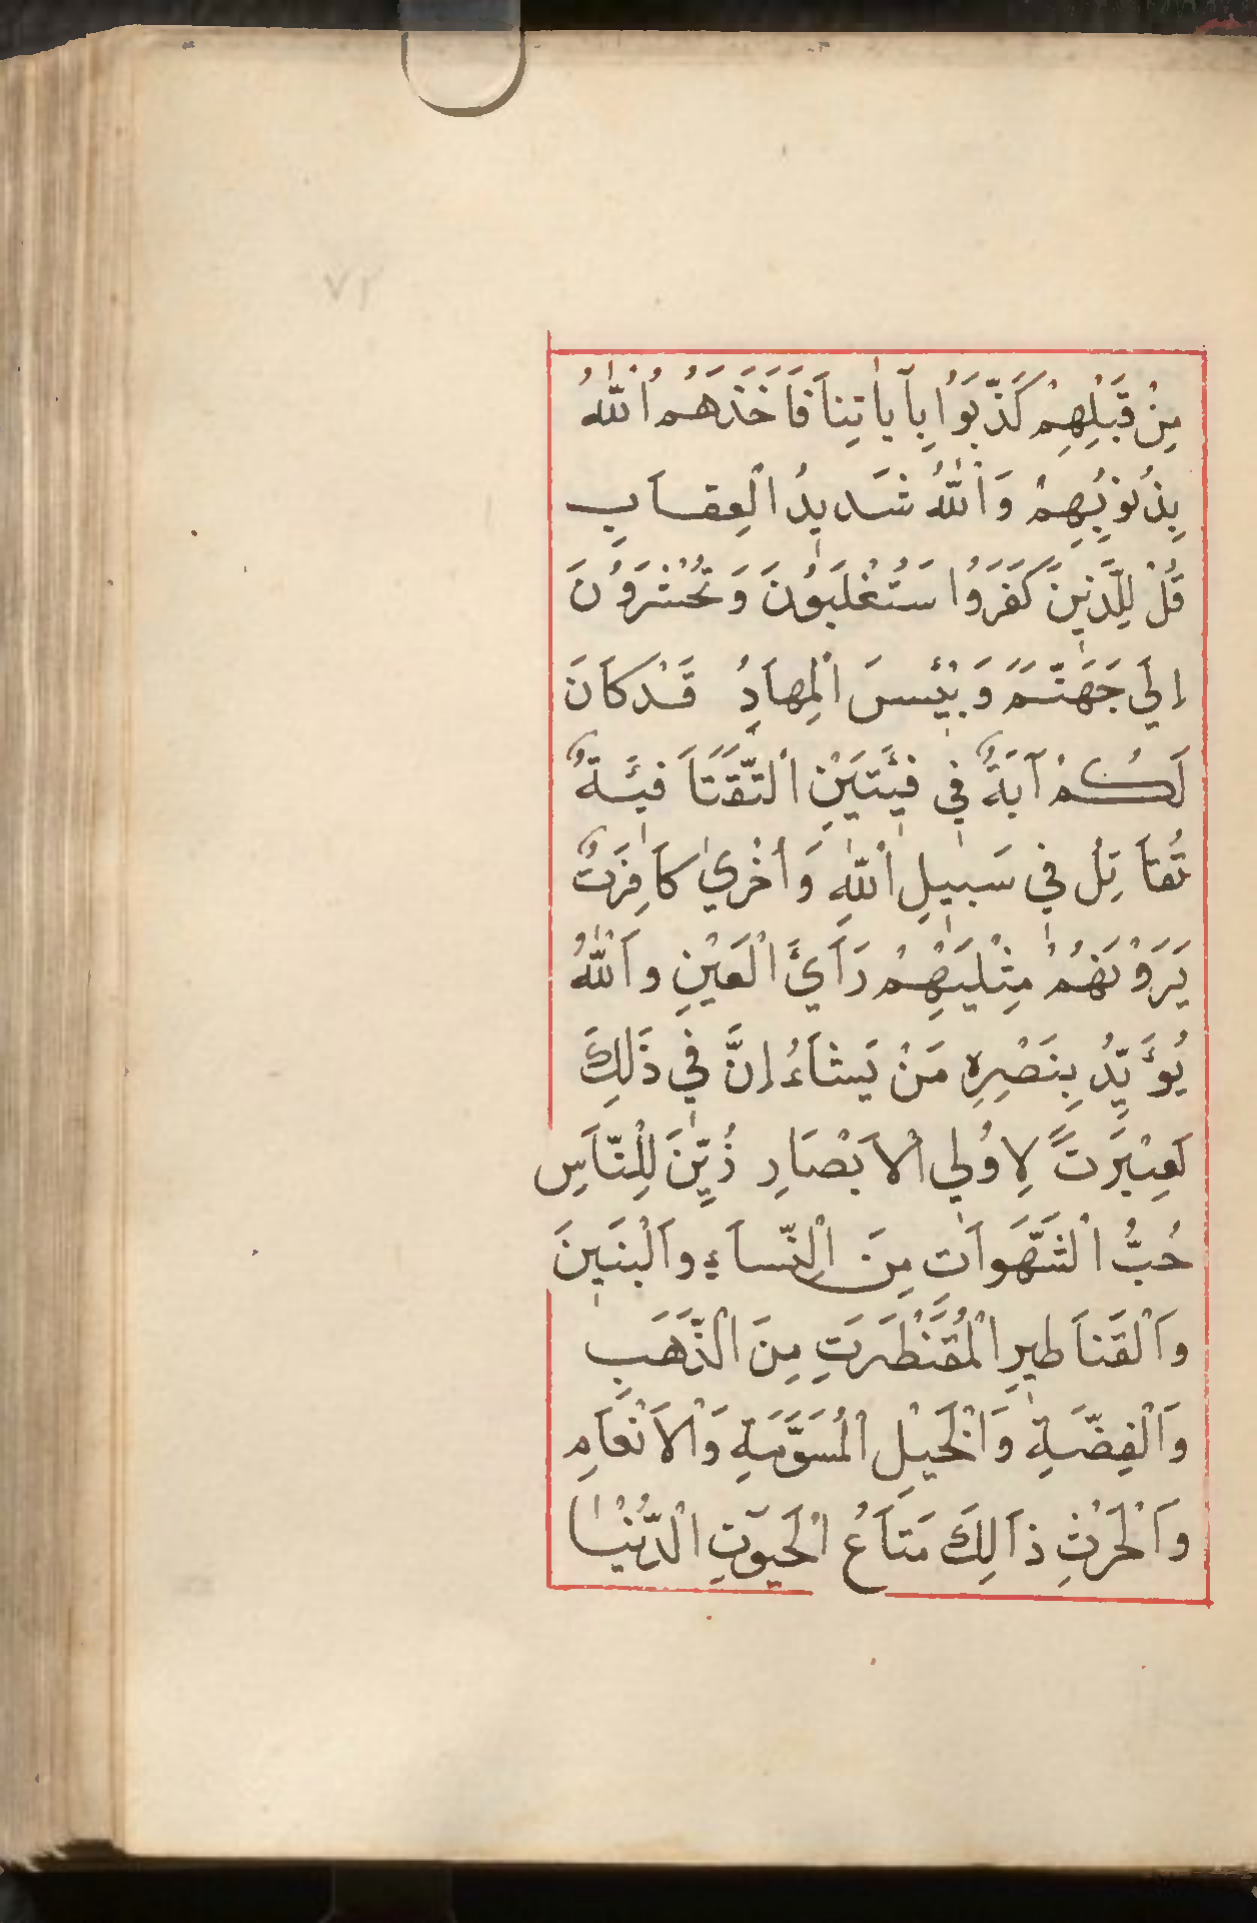 مِنْ قَبْلِهِمْ كَذَّبَوُا بِآيٰاتِنَا فَاَخَذَهُمُ اُللّٰهُ
بِذُنوُبِهِمْ وَاْللّٰهُ شَدِيدُ الْعِقَابِ
قُلْ لِلَّذِينَ كَفَرَوُا سَتُغْلَبَوُنَ وَتُحْشَرَوُنَ
اِلَي جَهَنَّمَ وَبِئْسَ الْمِهَادِ قَدْ كَانَ
لَكُمْ آيَةٌ فِي فِئَتَيْنِ الْتَقَتَا فِئَةٌ
تُقَاتِلُ فِي سَبِيلِ اْللّٰهِ وَاُخْرٰي كَافِرَتٌ
يَرَوْنَهُمْ مِثْلَيْهِمْ رَاَيَ الْعَيْنِ وَاْللّٰهُ
يُؤَيِّدُ بِنَصْرِهِ مَنْ يَشَاءُ اِنَّ فِي ذَلِكَ
لَعِبْرَتً لِاوُلِي اْلاَبْصَارِ زُيِّنَ لِلْنَّاسِ
حُبُّ اْلشَّهَوَاتِ مِنَ الْنِّسَاءِ وَالْبَنِينَ
وَالْقَنَاطِيرِ الْمُقَنْطَرَتِ مِنَ الْذَّهَبِ
وَالْفِضَّةِ وَاْلْخَيْلِ الْمُسَوَّمَةِ وَالْاَنْعَامِ
وَاْلْحَرْثِ ذَالِكَ مَتَاعُ الْحَيٰوتِ الْدُّنْيٰا